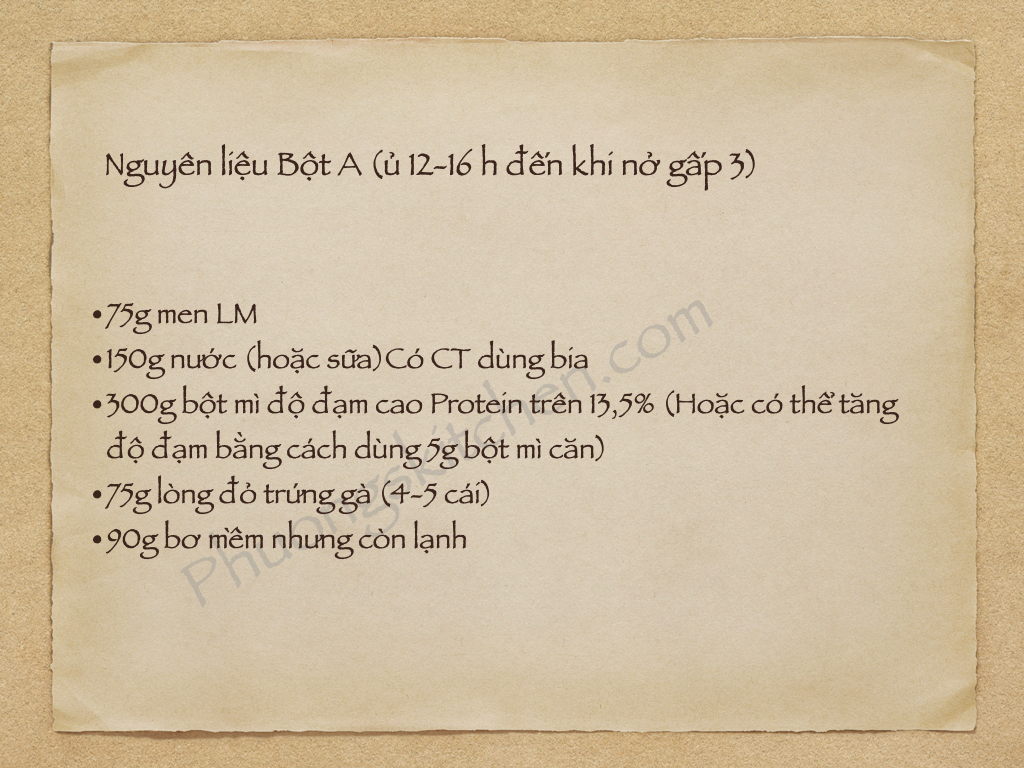 Nguyên liệu Bột A (ủ 12-16 h đến khi nở gấp 3)
•75g men LM
•150g nước (hoặc sữa)Có CT dùng bia
•300g bột mì độ đạm cao Protein trên 13,5% (Hoặc có thể tăng
độ đạm bằng cách dùng 5g bột mì căn)
•75g lòng đỏ trứng gà (4-5 cái)
•90g bơ mềm nhưng còn lạnh
Phuongskitchen.com